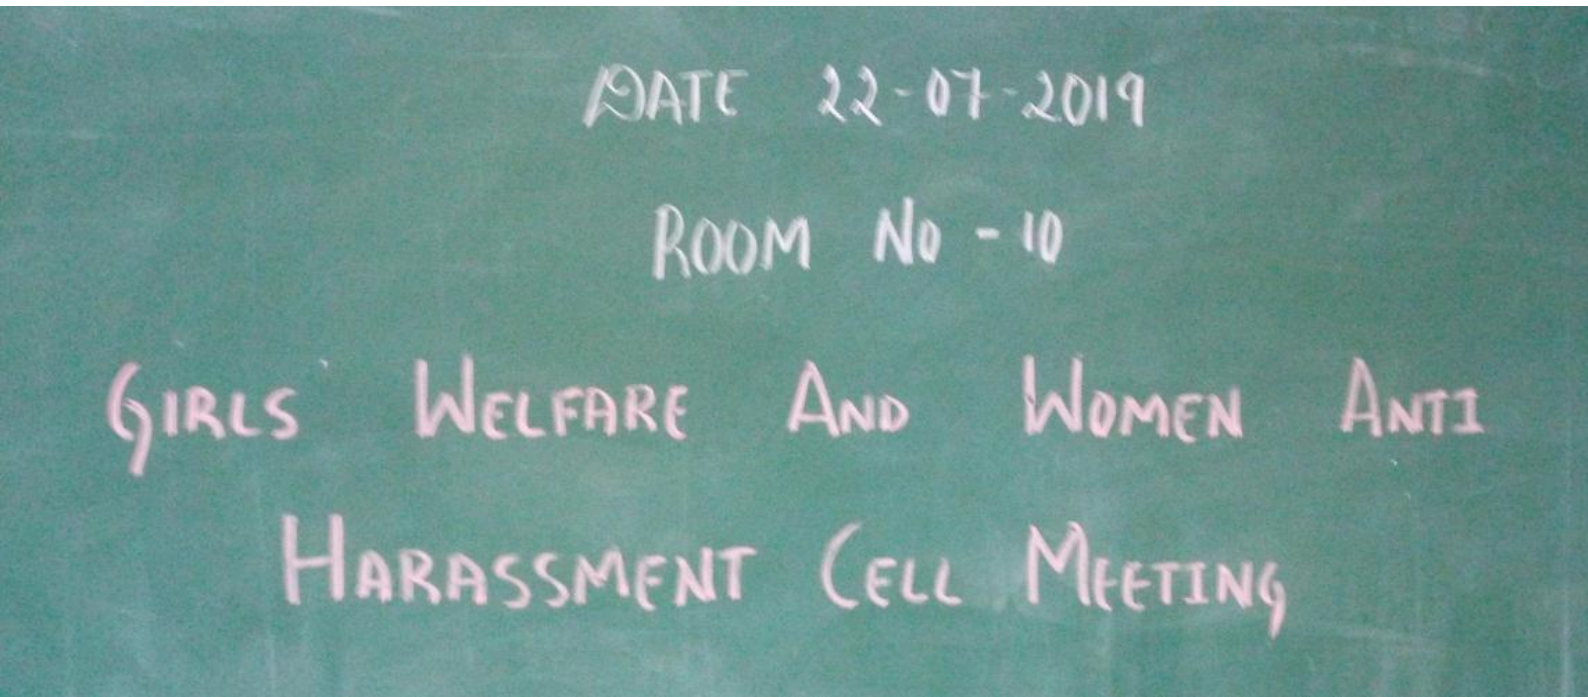 DATE 22-07-2019
ROOM NO - 10
GIRLS WELFARE AND WOMEN ANTI
HARASSMENT CELL MEETING